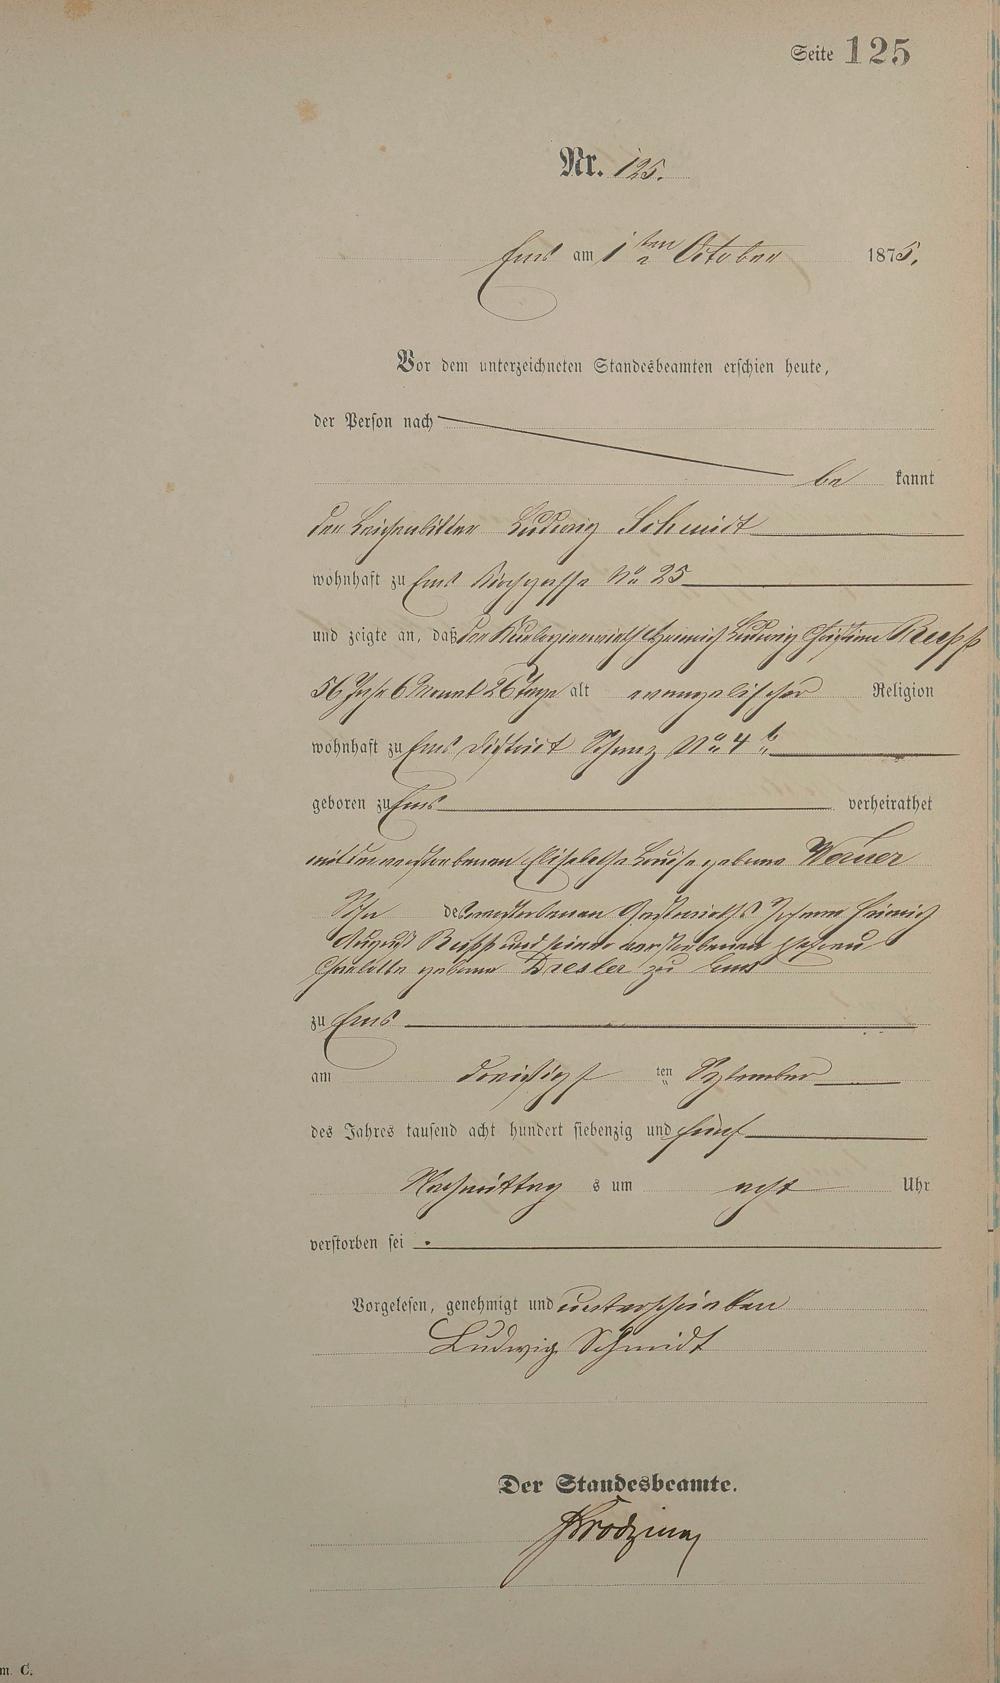 Seite 125
Nr. 125.
Ems am 1ten October 1875.
Vor dem unterzeichneten Standesbeamten erschien heute,
der Person nach
be kannt
der Leichenbitter Ludwig Schmidt
wohnhaft zu Ems Kirchgasse No 25
und zeigte an, daß der Heinrich Ludwig Christian Rupp
56 Jahr 6 Monat 26 Tage alt evangelischer Religion
wohnhaft zu Ems District No 4
geboren zu Ems verheirathet
mit der verstorbenen Elisabethe Louise geborne Werner
Sohn des verstorbenen Gastwirths Johann Heinrich
August Rupp und seiner verstorbenen Ehefrau
Charlotte geborne Dresler zu Ems
zu Ems
am dreißigst ten September
des Jahres tausend acht hundert siebenzig und fünf
Nachmittag s um acht Uhr
verstorben sei.
Vorgelesen, genehmigt und unterschrieben
Ludwig Schmidt
Der Standesbeamte.
m. C.